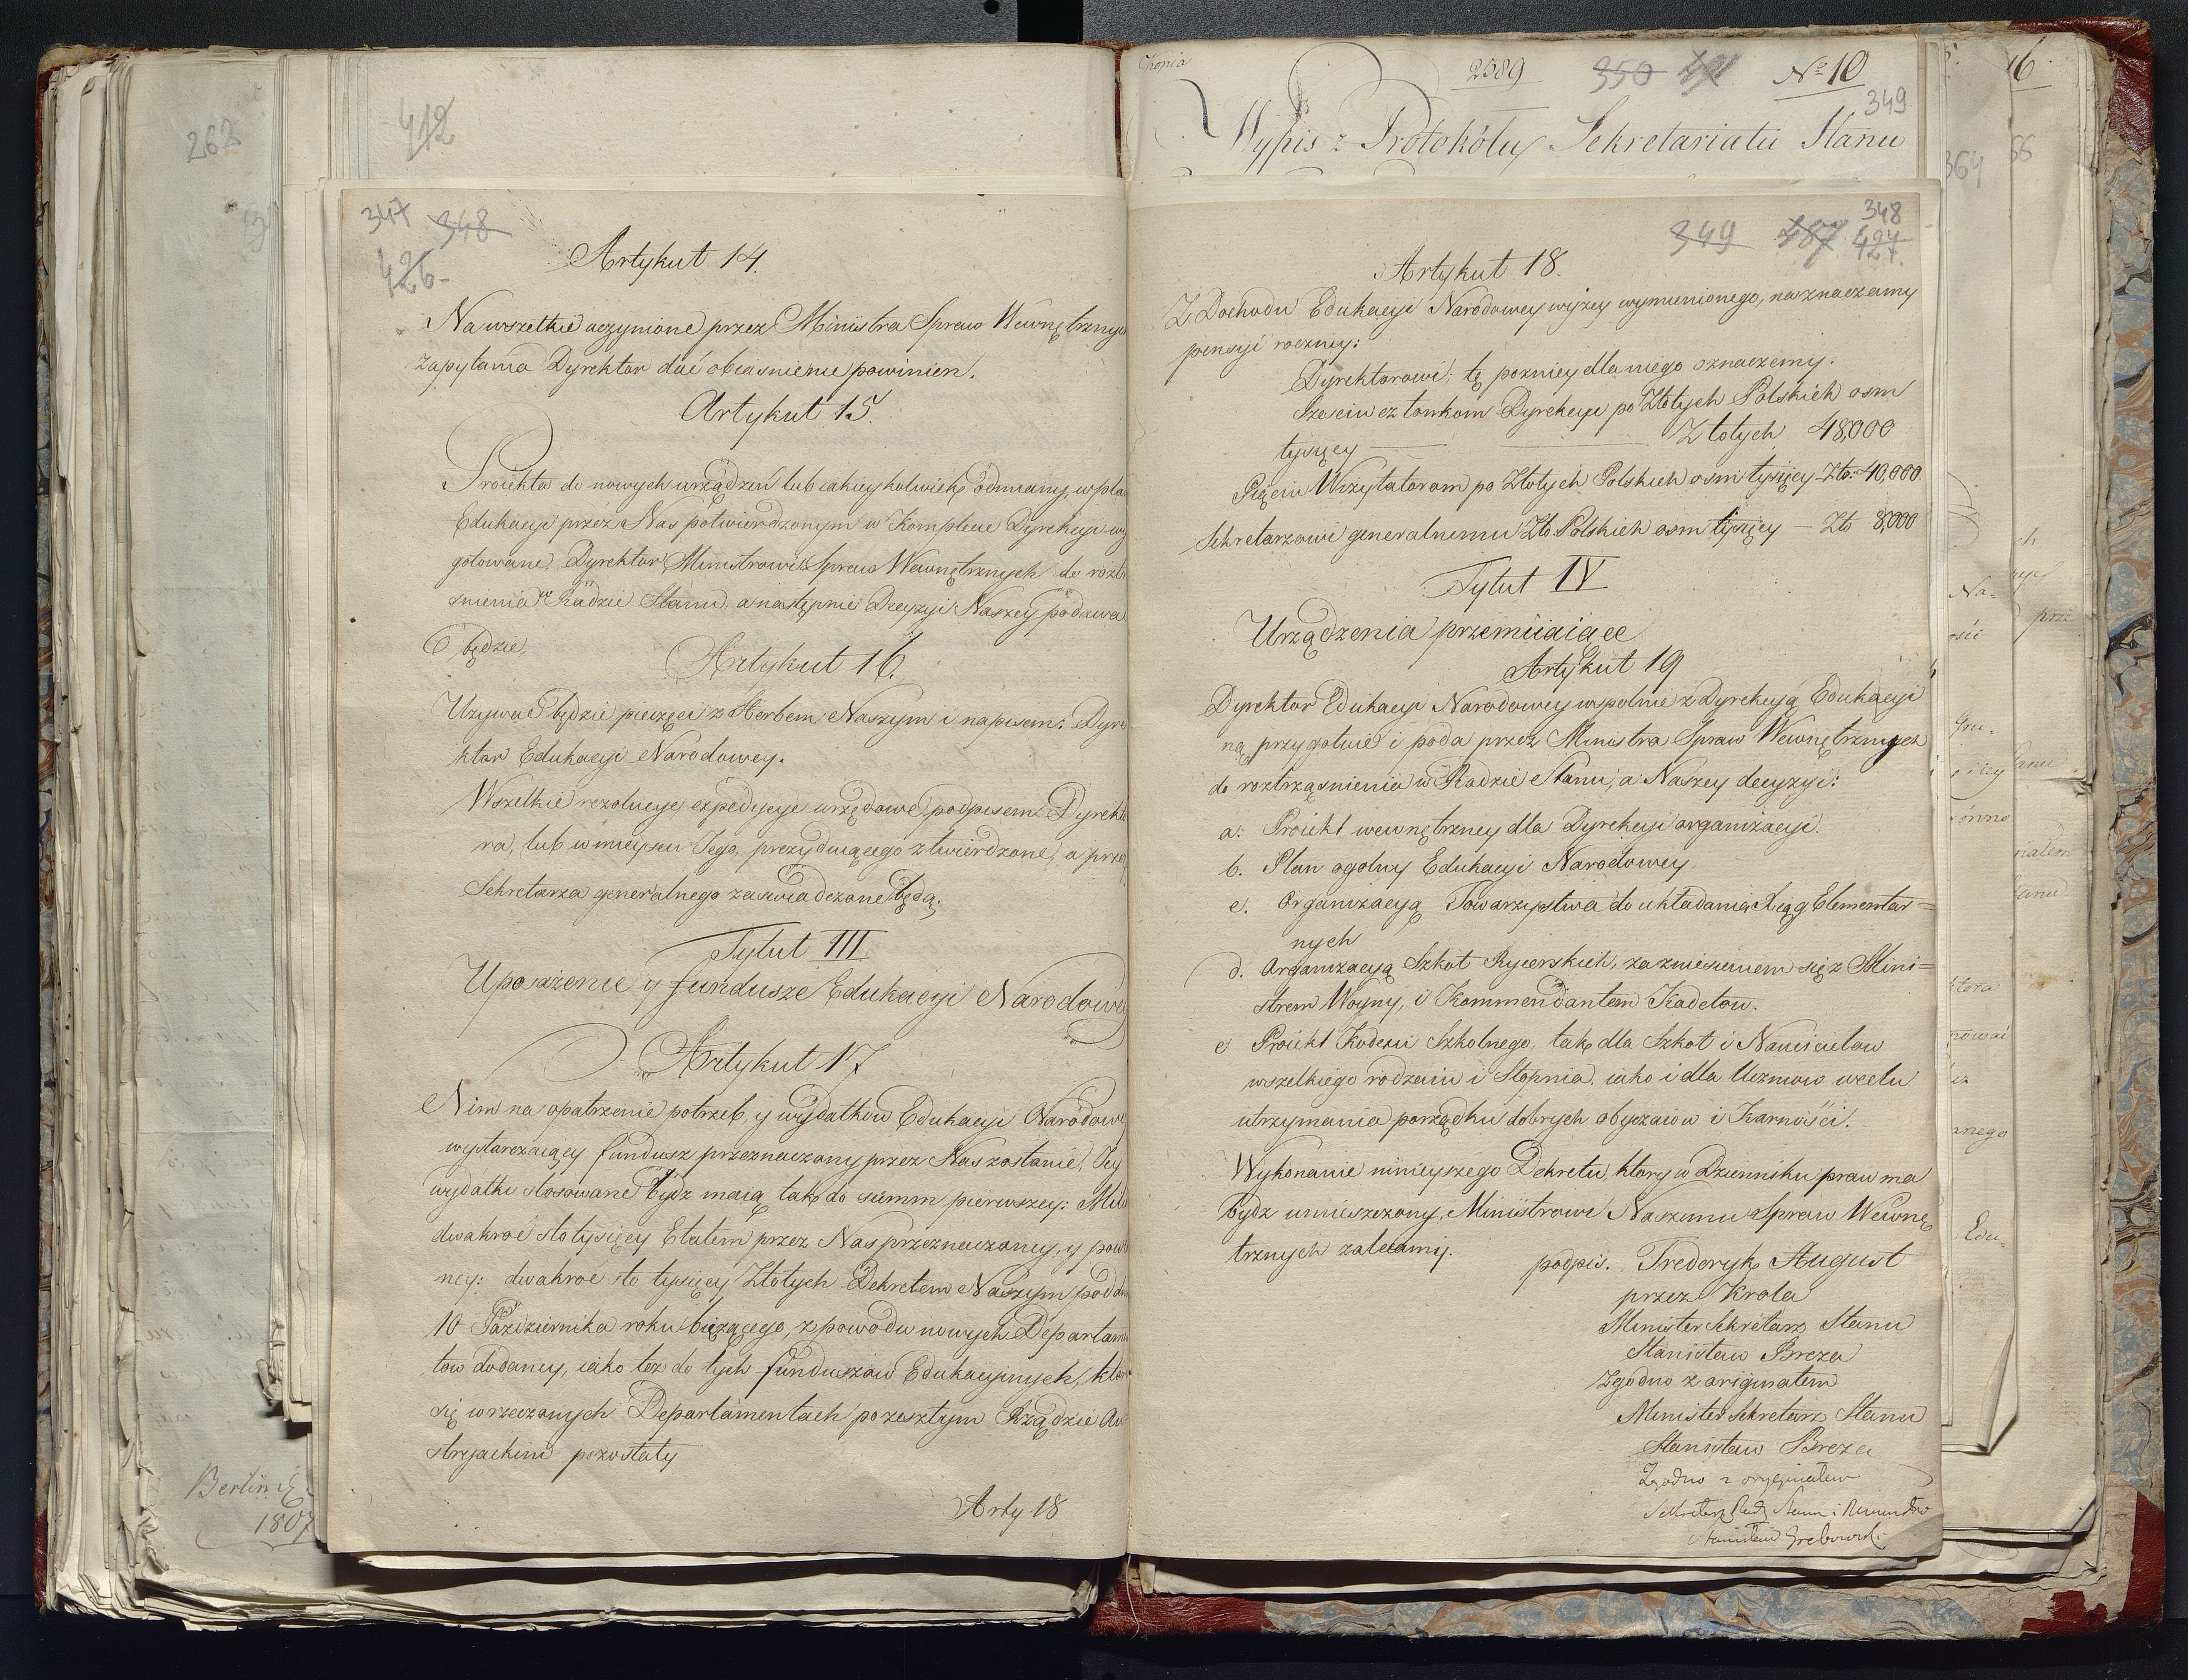 262
Berlin
1807
412
347 348
426
Artykuł 14.
Na wszelkie uczynione przez Ministra Spraw Wewnętrznych
zapytania Dyrektor dać obiasnienie powinien.
Artykuł 15.
Proiekta do nowych urządzeń lub iakiey kolwiek odmiany w pla
Edukacyi przez Nas potwierdzonym w Komplecie Dyrekcyi wy
gotowane, Dyrektor Ministrowi Spraw Wewnętrznych do roztr
snienia w Radzie Stanu, a następnie Decyzyi Naszey podawa
ć będzie.
Artykuł 16.
Uzywać będzie pieczęci z Herbem Naszym i napisem: Dyre
ktor Edukacyi Narodowey.
Wszelkie rezolucye expedycye urzędowe podpisem Dyrekto
ra, lub w mieyscu Jego, prezyduiącego ztwierdzone, a przez
Sekretarza generalnego zaswiadczone będą.
Tytuł III
Uposażenie y fundusze Edukacyi Narodowey
Artykuł 17
Nim na opatrzenie potrzeb, y wydatkow Edukacyi Narodowe
wystarczaiący fundusz przeznaczony przez Nas zostanie, Jey
wydatki stosowane bydz maią tak do summ pierwszey: Mili
dwakroć sto tysięcy Etatem przez Nas przeznaczoney, y powtor
ney: dwakroć sto tysięcy Złotych Dekretem Naszym pod dni
10 Października roku bieżącego, z powodu nowych Departamen
tow dodaney, iako tez do tych funduszow Edukacyinych, ktore
się w rzeczonych Departamentach po zeszłym Rządzie Au
stryackim pozostały
Arty 18
Kopia
2589 350 No 10
349
Wypis z Protokółu Sekretariatu Stanu
348
349 487 427.
Artykuł 18.
Z Dochodu Edukacyi Narodowey wyżey wymienionego, naznaczamy
pensyi roczney:
Dyrektorowi; tę pozniey dla niego oznaczemy.
Szesciu członkom Dyrekcyi po Złotych Polskich osm
tysięcy — Złotych 48,000
Pięciu Wizytatorom po Złotych Polskich osm tysięcy - Zło: 40,000.
Sekretarzowi generalnemu Zło Polskich osm tysięcy — Zło 8,000
Tytuł IV
Urządzenia przemiiaiące
Artykuł 19
Dyrektor Edukacyi Narodowey wspolnie z Dyrekcyą Edukacyi
ną przygotuie i poda przez Ministra Spraw Wewnętrznych
do roztrząsnienia w Radzie Stanu, a Naszey decyzyi:
a: Proiekt wewnętrzney dla Dyrekcyi organizacyi.
b. Plan ogolny Edukacyi Narodowey
c. Organizacyą Towarzystwa do układania Xiąg Elementar=
nych
d. Organizacyą Szkół Rycerskich, za zniesieniem się z Mini=
strem Woyny, i Kommendantem Kadetow.
e Proiekt Kodexu Szkolnego, tak dla Szkoł i Nauczicielow
wszelkiego rodzaiu i Stopnia, iako i dla Uczniow w celu
utrzymania porządku dobrych obyczaiow i Karności.
Wykonanie ninieyszego Dekretu, ktory w Dzienniku praw ma
bydz umieszczony, Ministrowi Naszemu Spraw Wewnę
trznych zalecamy.
podpis. Frederyk August
przez Krola
Minister Sekretarz Stanu
Stanisław Breza
Zgodno z originałem
Minister Sekretarz Stanu
Stanisław Breza
Zgodno z oryginałem
Sekretarz Rady Stanu i Ministrów
Stanisław Grabowski
16
364
Na=
ości
przez
Gru=
Stanu
rowno
ktora
nnego
Edu=